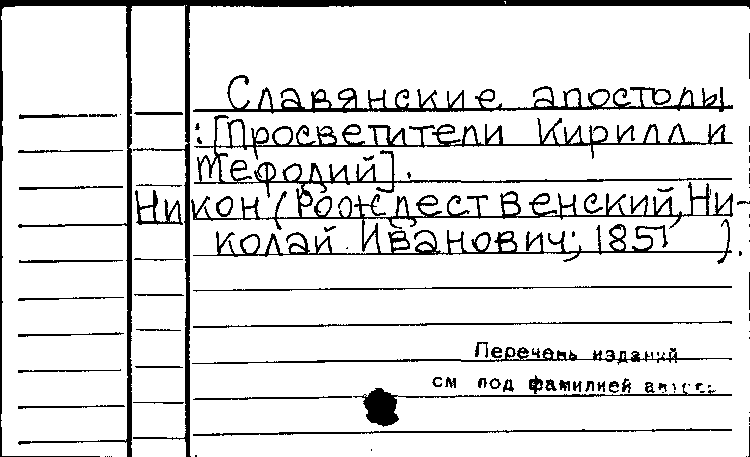 Славянские апостолы
: [Просветители Кирилл и
Мефодий].
Никон (Рождественский, Ни-
колай Иванович; 1851 ).
Перечень изданий
см под фамилией автора